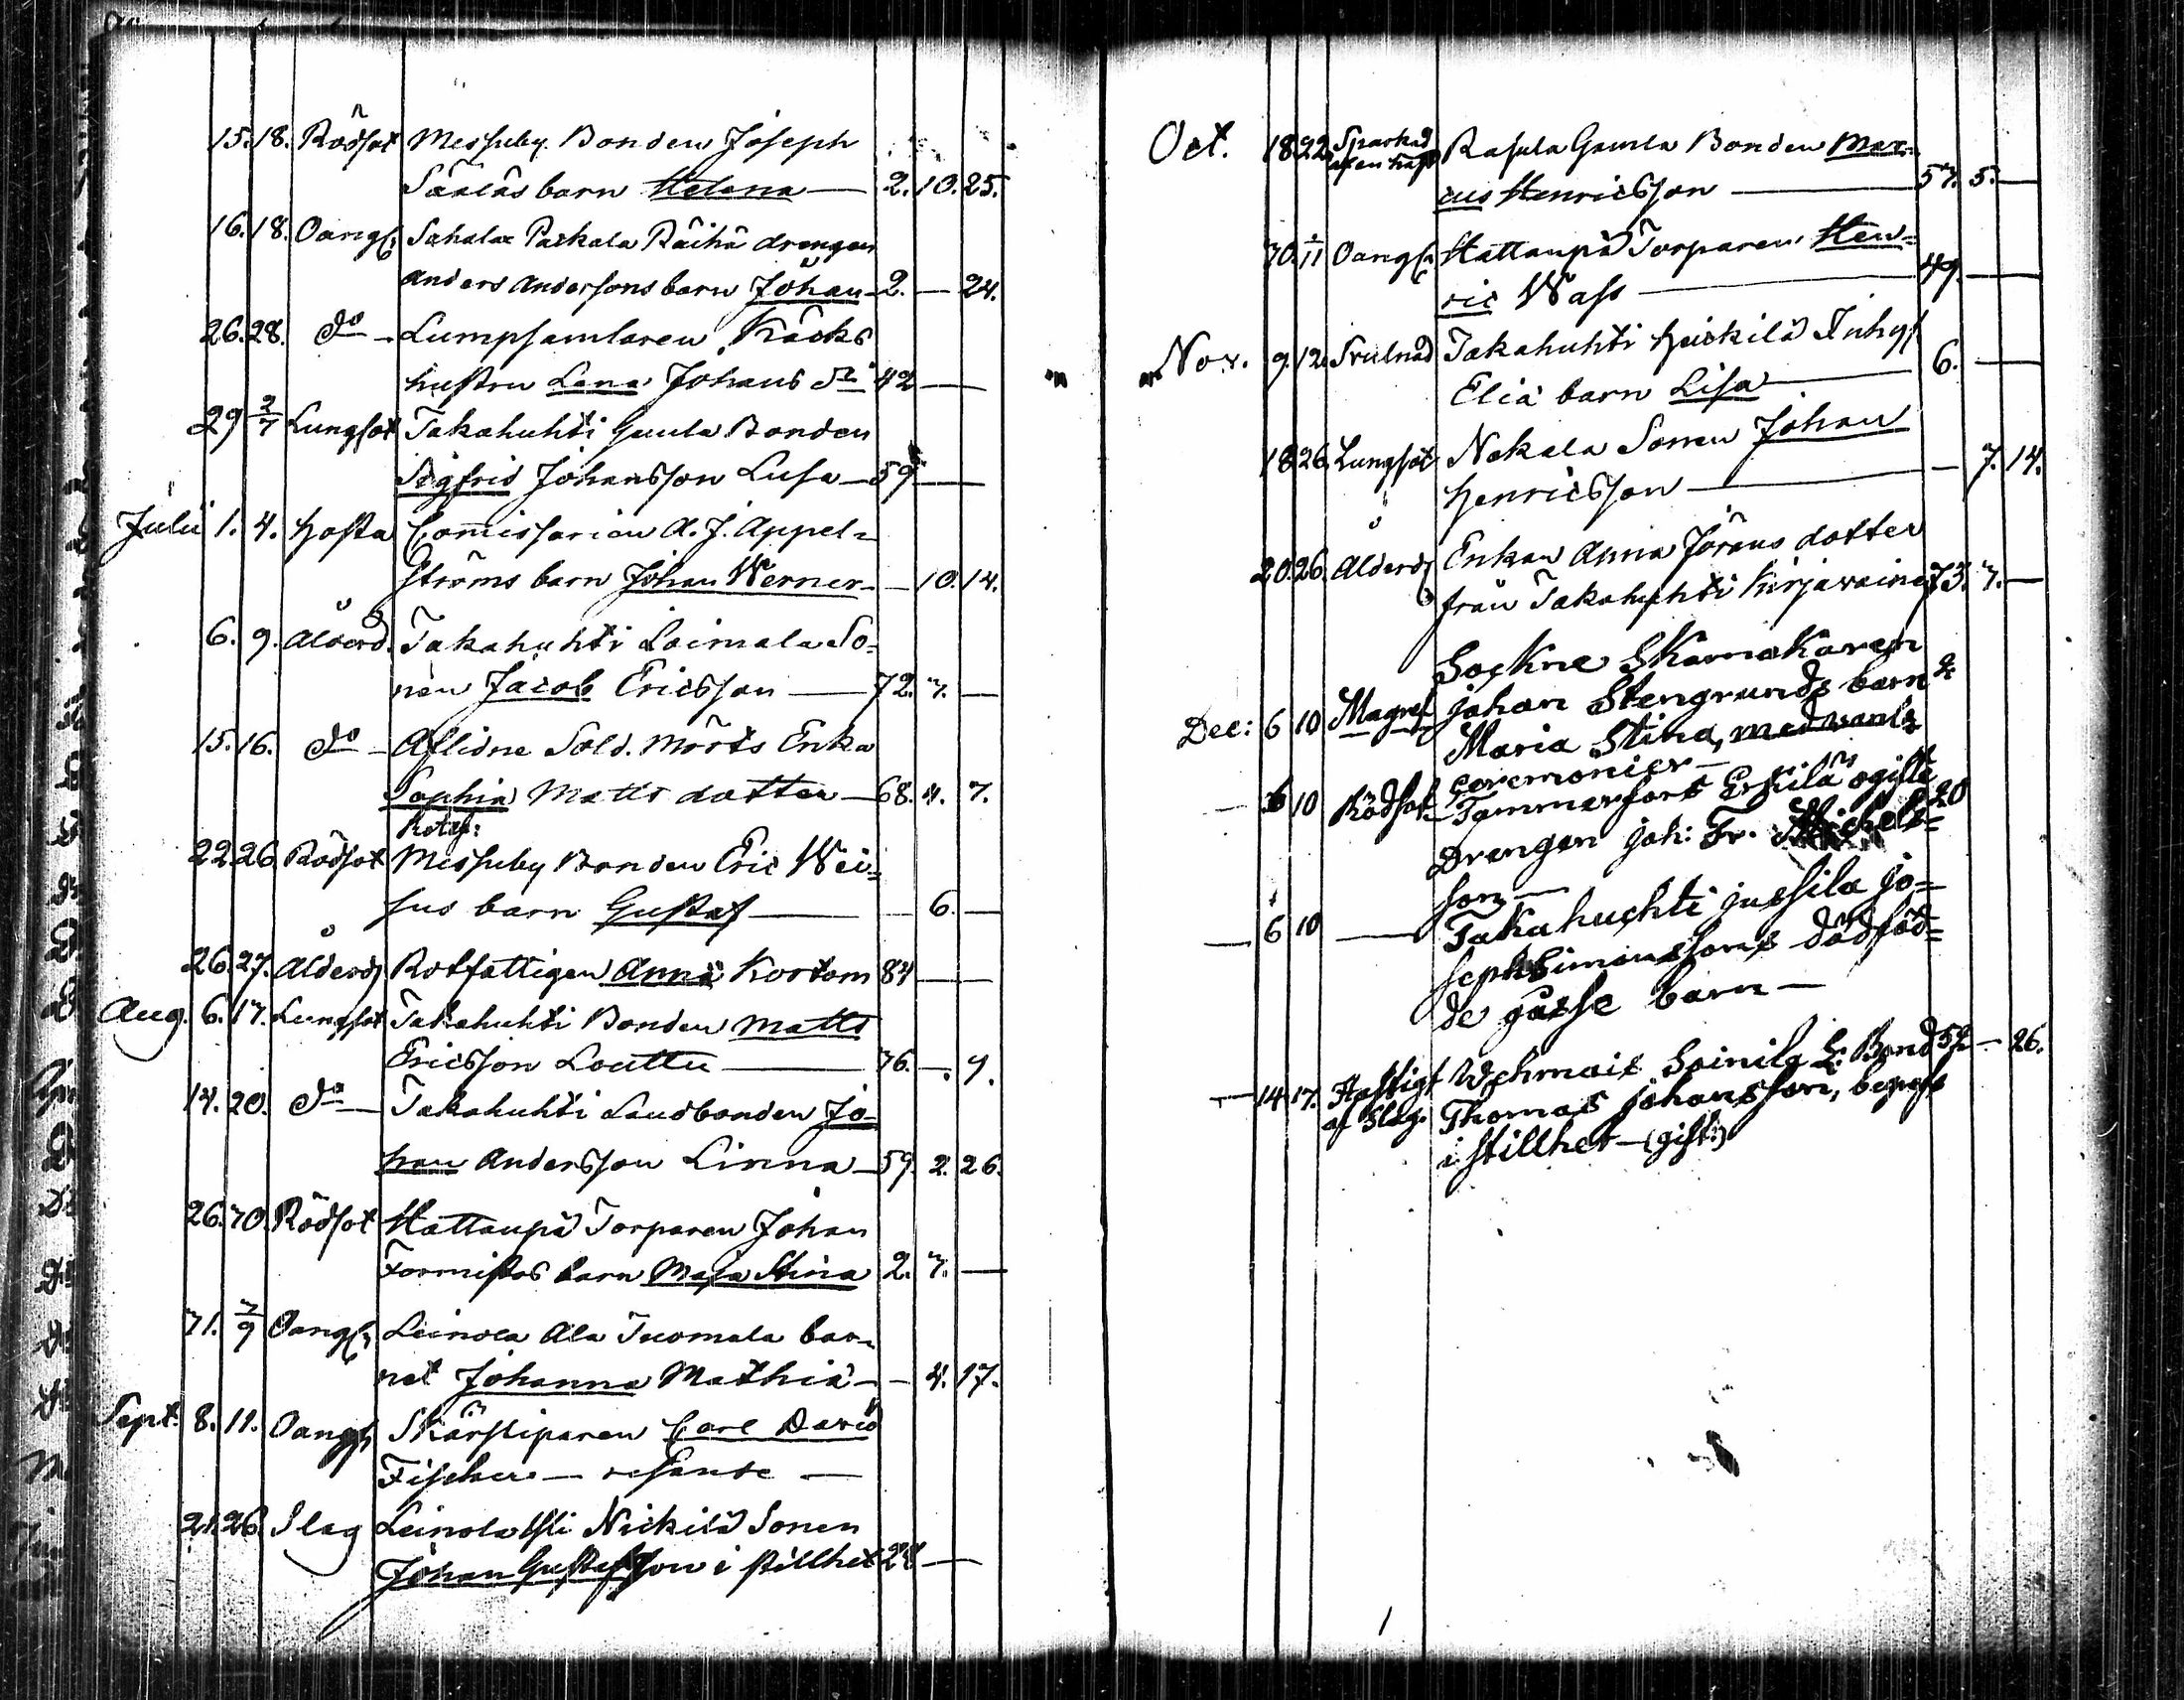 15. 18. Rödsot Messuby Bonden Joseph
Säkläs barn Helena — 2. 10. 25.
16. 18. Oangf. Sahala Paskala Räihä drengen
Anders Andersons barn Johan — 2. — 24.
26. 28. Do — Lumpsamlaren Käcks
hustru Lena Johans Dr 42 —
29 2/7 Lungsot Takahuhti Gamla Bonden
Sigfrid Johansson Lusa — 59 —
Julii 1. 4. Hosta Commissarien A. J. Appel-
ströms barn Johan Werner — — 10. 14.
6. 9. Ålderd. Takahuhti Loimala So-
nen Jacob Ericsson — 72. 7. —
15. 16. Do — Aflidne Sold. Mörts Enka
Sophia Matts dotter — 68. 4. 7.
22 26 Rödsot Messuby Bonden Eric Wei-
sus barn Gustaf — — 6. —
26. 27. Ålderd. Rotfattigen Anna Kortom 84 — —
Aug. 6. 17. Lungsot Takahuhti Bonden Matts
Ericsson Louttu — 76. —. 9.
14. 20. Do — Takahuhti Landbonden Jo-
han Andersson Linna — 59. 2. 26.
26. 30. Rödsot Hattanpä Torparen Johan
Formistos barn Maja Stina 2. 7. —
31. 3/9 Oangf. Leinola Ala Tuomala bar-
net Johanna Mathiä — — 4. 17.
Sept. 8. 11. Oangf. Skärsliparen Carl David
Fischer — resande —
21. 26. Slag Leinola Yli Nickilä Sonen
Johan Gustafsson i stillhet 24 —
Oct. 18 22 Sparkad
af en häst Rasula Gamla Bonden Mar-
cus Henricsson — 57. 5. —
30. 2/11 Oangf. Hattanpä Torparen Hen-
ric Wass — 49. —
Nov. 9. 12. Svulnad Takahuhti Heickilä Inhys
Eliä barn Lisa — 6. —
18 26. Lungsot Nekala Sonen Johan
Henricsson — — 7. 14.
20. 26. Ålderd. Enkan Anna Jörans dotter
från Takahuhti Kirjavaine 73. 7. —
Sockne Skomakaren
Dec: 6 10 Magref johan Stengrunds barn 2
Maria Stina, med vanl.
ceremonier —
— 6 10 Rödsot — Tammerfors Erkilä ogifte
Drengen joh: Fr. Michels- 20
son —
— 6 10 — Takahuchti jussila jo-
seph Simonssons dödföd-
de gosse barn —
— 14 17. Hastigt
af slag. Wehmais Soinila L: Bond 52 — 26.
Thomas johansson, begrafs
i stillhet — (gift:)